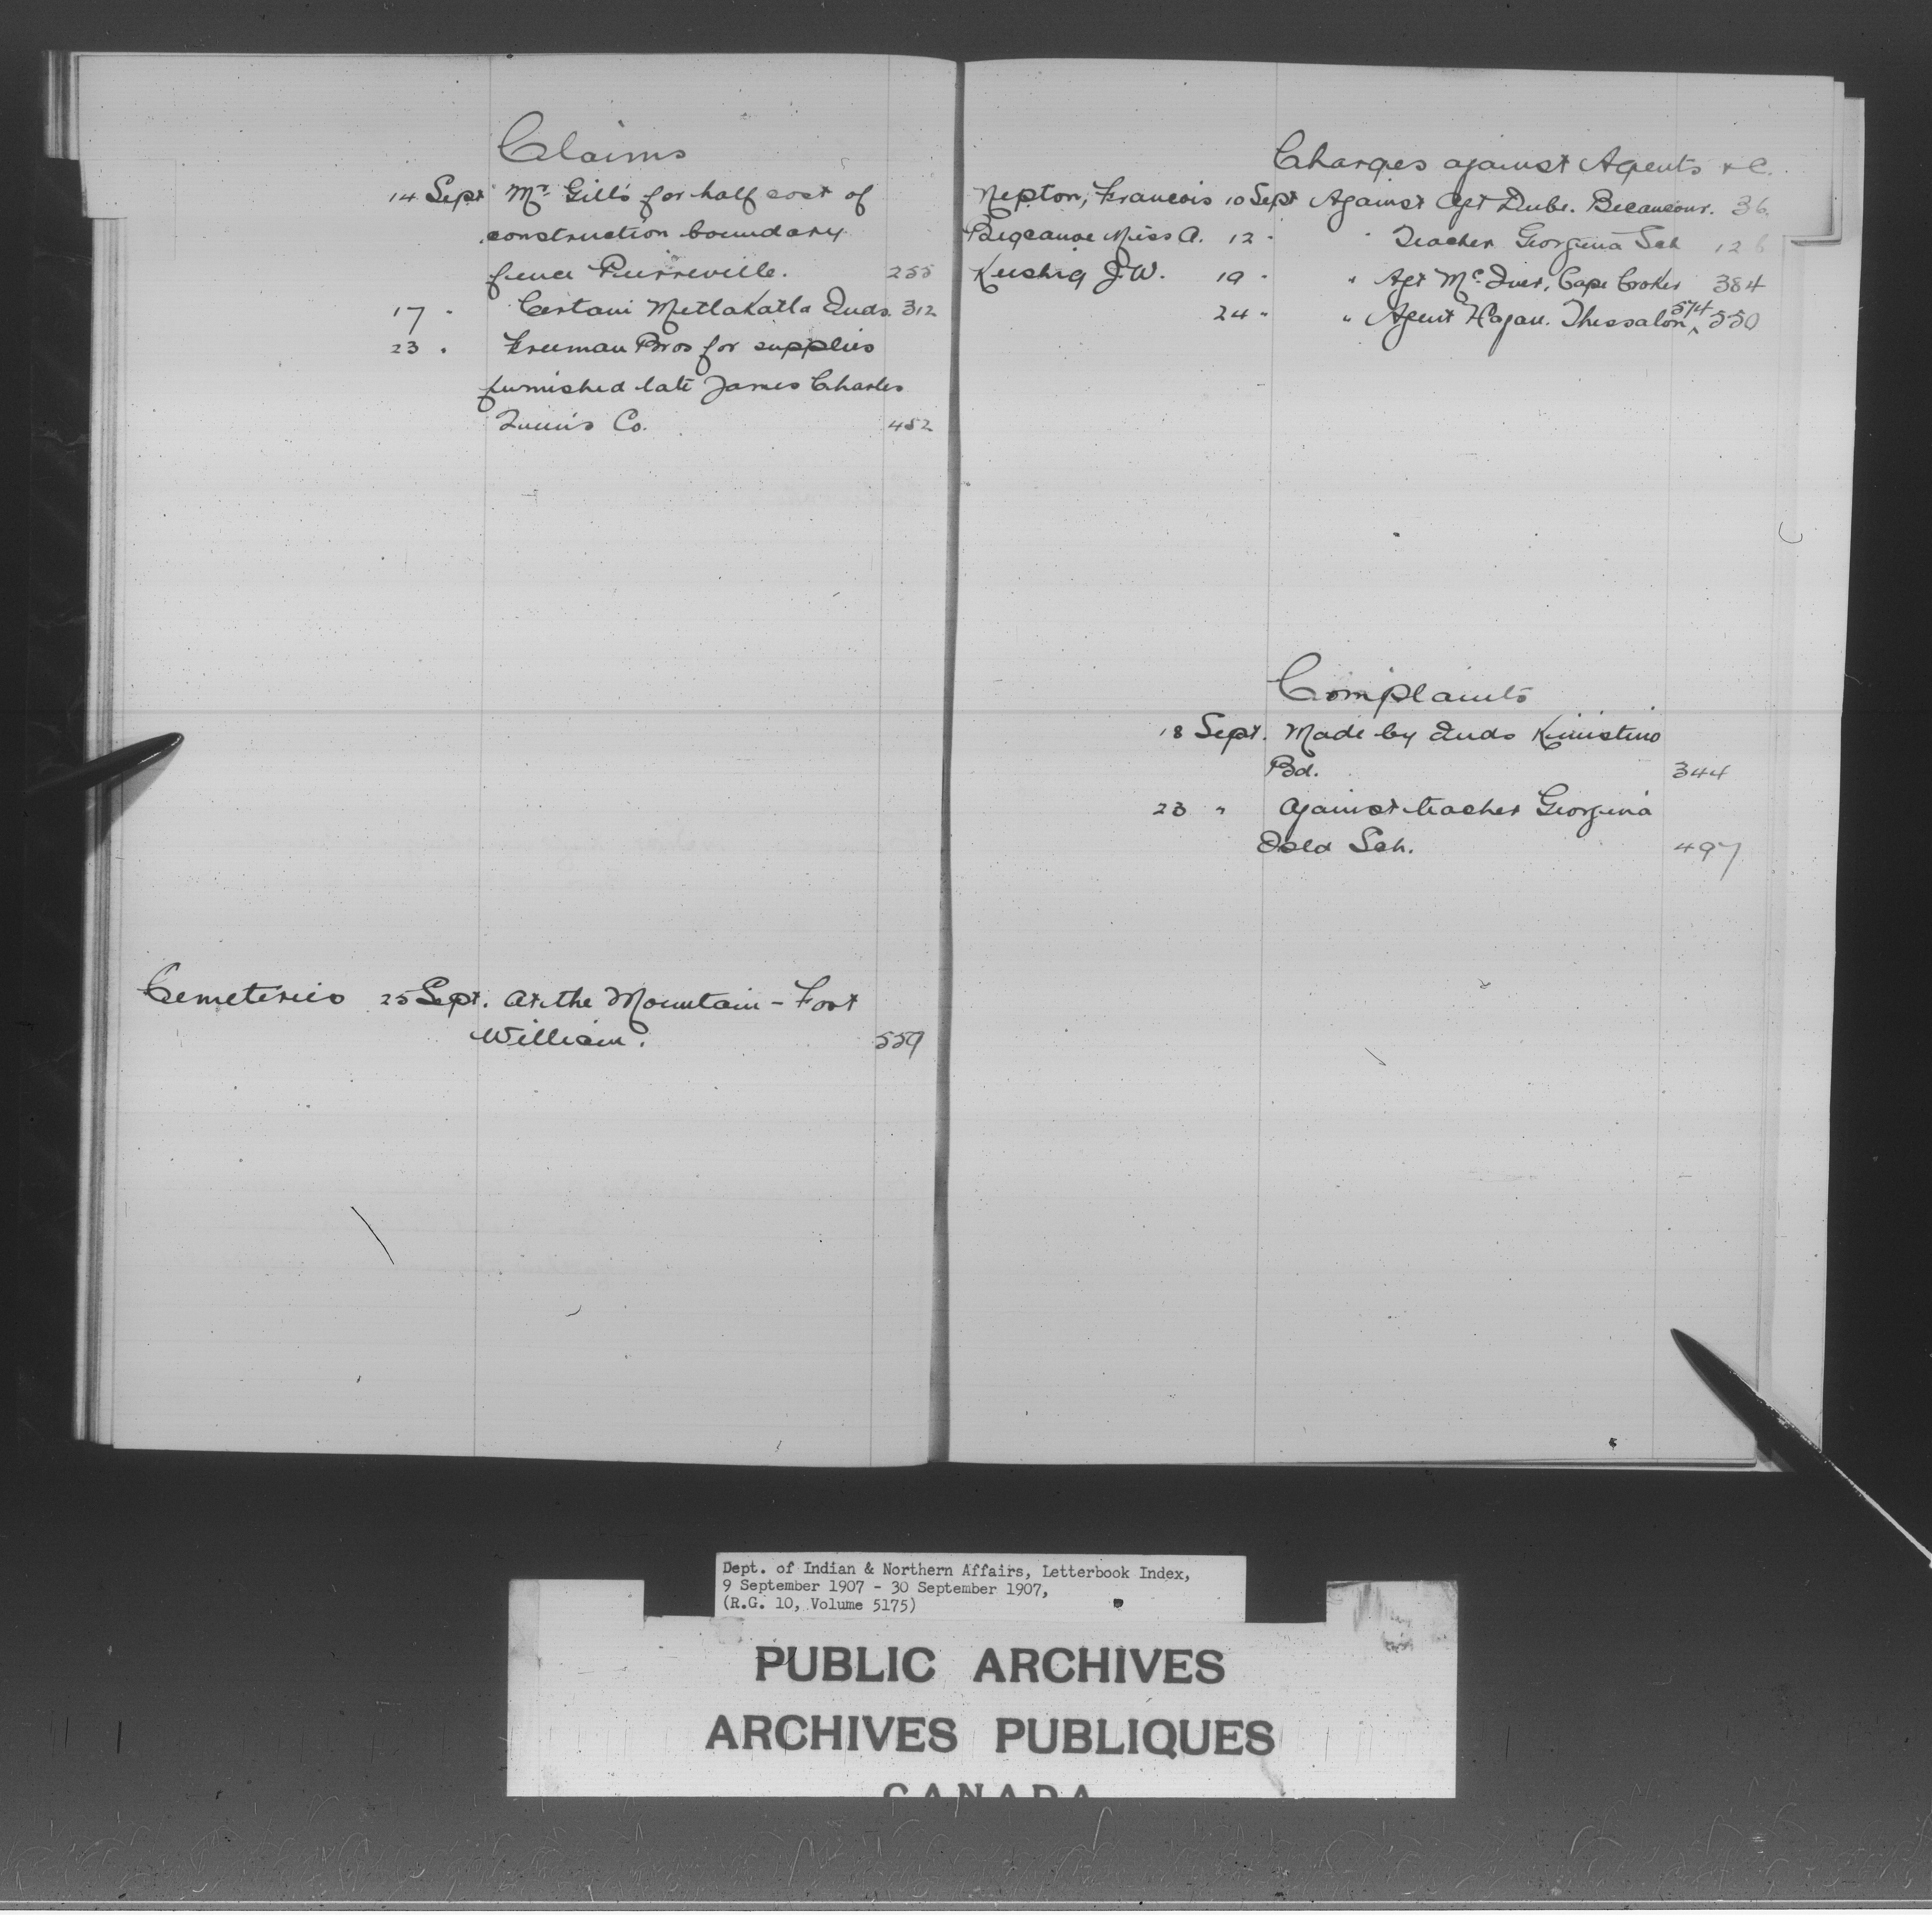 Claims
14 Sept Mr. Gill's for half cost of
construction boundary
fence Pierreville. 255
17 " Certain Metlakatla Inds. 312
23 " Freeman Bros for supplies
furnished late James Charles
Co. 452
Cemeteries 25 Sept. At the Mountain - Fort
William. 559
Charges against Agents &c.
Nepton, Francois 10 Sept Against Agt Dube. Becancour. 36
Bigcanoe Miss A. 12 " " Teacher Georgina Sch 126
Keshig J.W. 19 " " Agt McIver, Cape Croker 384
24 " " Agent Hagan. Thessalon, 574 ^ 550
Complaints
18 Sept. Made by Inds Kinistino
Bd. 344
23 " Against teacher Georgina
Isld Sch. 497
Dept. of Indian & Northern Affairs, Letterbook Index,
9 September 1907 - 30 September 1907,
(R.G. 10, Volume 5175)
PUBLIC ARCHIVES
ARCHIVES PUBLIQUES
CANADA